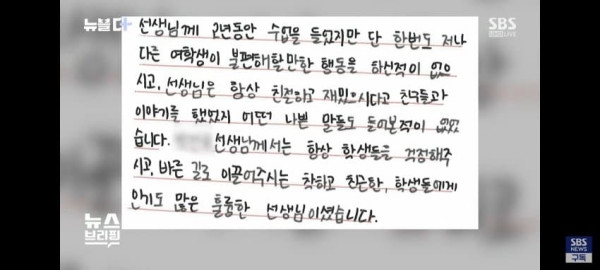 뉴블더
SBS
선생님께 2년동안 수업을 들었지만 단 한번도 저나
다른 여학생이 불편해할만한 행동을 하신적이 없으
시고, 선생님은 항상 친절하고 재밌으시다고 친구들과
이야기를 했었지 어떤 나쁜 말들도 들어본적이 없었
습니다. 선생님께서는 항상 학생들을 걱정해주
시고, 바른 길로 이끌어주시는 착하고 친근한, 학생들에게
인기도 많은 훌륭한 선생님이셨습니다.
뉴스
브리핑
SBS
NEWS
구독